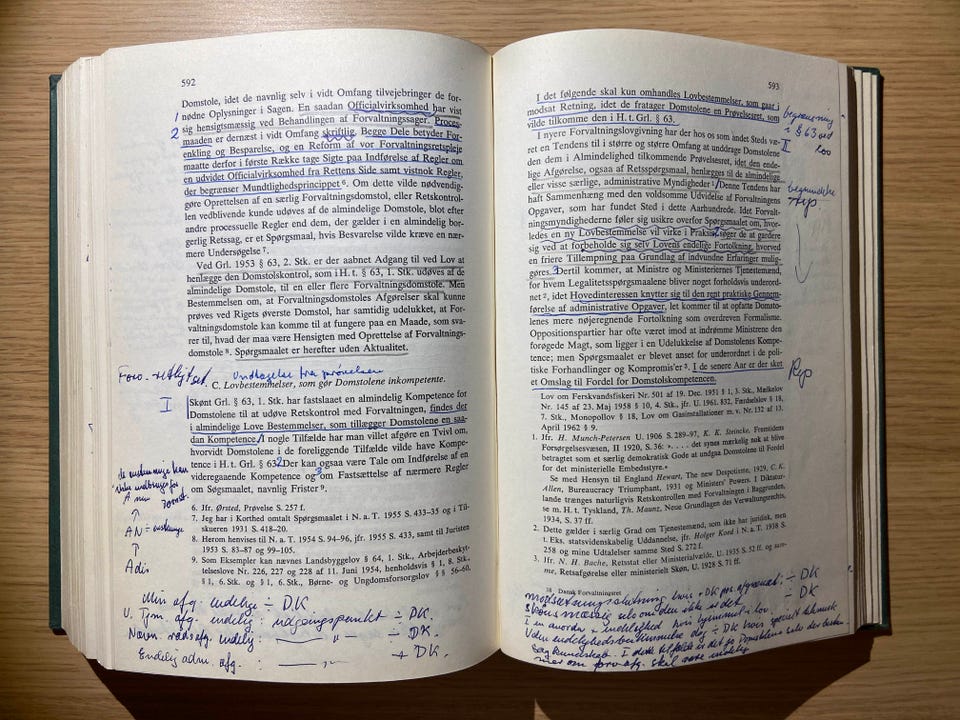 592
Domstole, idet de navnlig selv i vidt Omfang tilvejebringer de for-
nødne Oplysninger i Sagen. En saadan Officialvirksomhed har vist
sig hensigtsmæssig ved Behandlingen af Forvaltningssager. Proces-
maaden er dernæst i vidt Omfang skriftlig. Begge Dele betyder For-
enkling og Besparelse, og en Reform af vor Forvaltningsretspleje
maatte derfor i første Række tage Sigte paa Indførelse af Regler om
en udvidet Officialvirksomhed fra Rettens Side samt vistnok Regler,
der begrænser Mundtlighedsprincippet 6. Om dette vilde nødvendig-
gøre Oprettelsen af en særlig Forvaltningsdomstol, eller Retskontrol-
len vedblivende kunde udøves af de almindelige Domstole, blot efter
andre processuelle Regler end dem, der gælder i en almindelig bor-
gerlig Retssag, er et Spørgsmaal, hvis Besvarelse vilde kræve en nær-
mere Undersøgelse 7.
Ved Grl. 1953 § 63, 2. Stk. er der aabnet Adgang til ved Lov at
henlægge den Domstolskontrol, som i H. t. § 63, 1. Stk. udøves af de
almindelige Domstole, til en eller flere Forvaltningsdomstole. Men
Bestemmelsen om, at Forvaltningsdomstoles Afgørelser skal kunne
prøves ved Rigets øverste Domstol, har samtidig udelukket, at For-
valtningsdomstole kan komme til at fungere paa en Maade, som sva-
rer til, hvad der maa være Hensigten med Oprettelse af Forvaltnings-
domstole 8. Spørgsmaalet er herefter uden Aktualitet.
Undtagelse fra prøvelsen
C. Lovbestemmelser, som gør Domstolene inkompetente.
I
Skønt Grl. § 63, 1. Stk. har fastslaaet en almindelig Kompetence for
Domstolene til at udøve Retskontrol med Forvaltningen, findes det
i almindelige Love Bestemmelser, som tillægger Domstolene en saa-
dan Kompetence. 1 I nogle Tilfælde har man villet afgøre en Tvivl om,
hvorvidt Domstolene i de foreliggende Tilfælde vilde have Kompe-
tence i H. t. Grl. § 63. 2 Der kan ogsaa være Tale om Indførelse af en
videregaaende Kompetence og 3 om Fastsættelse af nærmere Regler
om Søgsmaalet, navnlig Frister 9.
6. Jfr. Ørsted, Prøvelse S. 257 f.
7. Jeg har i Korthed omtalt Spørgsmaalet i N. a. T. 1955 S. 433–35 og i Til-
skueren 1931 S. 418–20.
8. Herom henvises til N. a. T. 1954 S. 94–96, jfr. 1955 S. 433, samt til Juristen
1953 S. 83–87 og 99–105.
9. Som Eksempler kan nævnes Landsbyggelov § 64, 1. Stk., Arbejderbeskyt-
telseslovene Nr. 226, 227 og 228 af 11. Juni 1954, henholdsvis § 1, 8. Stk.,
§ 1, 6. Stk. og § 1, 6. Stk., Børne- og Ungdomsforsorgslov §§ 56–60,
AN
Min afg. endelige ÷ DK
U. Tjm. afg. endelig: udgangspunkt ÷ DK.
Nævn. rådsafg. endelig: — " — ÷ DK.
Endelig adm. afg. : — " — + DK.
593
I det følgende skal kun omhandles Lovbestemmelser, som gaar i
modsat Retning, idet de fratager Domstolene en Prøvelsesret, som
vilde tilkomme den i H. t. Grl. § 63.
begrænsning
i § 63 ved
lov
II
I nyere Forvaltningslovgivning har der hos os som andet Steds væ-
ret en Tendens til i større og større Omfang at unddrage Domstolene
den dem i Almindelighed tilkommende Prøvelsesret, idet den ende-
lige Afgørelse, ogsaa af Retsspørgsmaal, henlægges til de almindelige
eller visse særlige, administrative Myndigheder 1. Denne Tendens har
haft Sammenhæng med den voldsomme Udvidelse af Forvaltningens
Opgaver, som har fundet Sted i dette Aarhundrede. Idet Forvalt-
ningsmyndighederne føler sig usikre overfor Spørgsmaalet om, hvor-
ledes en ny Lovbestemmelse vil virke i Praksis, 2 søger de at gardere
sig ved at forbeholde sig selv Lovens endelige Fortolkning, hvorved
en friere Tillempning paa Grundlag af indvundne Erfaringer mulig-
gøres. 3 Dertil kommer, at Ministre og Ministeriernes Tjenestemænd,
for hvem Legalitetsspørgsmaalene bliver noget forholdsvis underord-
net 2, idet Hovedinteressen knytter sig til den rent praktiske Gennem-
førelse af administrative Opgaver, let kommer til at opfatte Domsto-
lenes mere nøjeregnende Fortolkning som overdreven Formalisme.
Oppositionspartier har ofte været imod at indrømme Ministrene den
forøgede Magt, som ligger i en Udelukkelse af Domstolenes Kompe-
tence; men Spørgsmaalet er blevet anset for underordnet i de politi-
ske Forhandlinger og Kompromis'er 3. I de senere Aar er der sket
et Omslag til Fordel for Domstolskompetencen.
begrundelse
Lov om Ferskvandsfiskeri Nr. 501 af 19. Dec. 1951 § 1, 3. Stk., Mælkelov
Nr. 145 af 23. Maj 1958 § 10, 4. Stk., jfr. U. 1961. 832, Færdselslov § 18,
7. Stk., Monopollov § 18, Lov om Gasinstallationer m. v. Nr. 132 af 13.
April 1962 § 9.
1. Jfr. H. Munch-Petersen U. 1906 S. 289–97, K. K. Steincke, Fremtidens
Forsørgelsesvæsen, II 1920, S. 36: ». . . . det synes mærkelig nok at blive
betragtet som et særlig demokratisk Gode at undgaa Domstolene til Fordel
for det ministerielle Embedsstyre.«
Se med Hensyn til England Hewart, The new Despotisme, 1929, C. K.
Allen, Bureaucracy Triumphant, 1931 og Ministers' Powers. I Diktatur-
landene trænges naturligvis Retskontrollen med Forvaltningen i Baggrunden,
se m. H. t. Tyskland, Th. Maunz, Neue Grundlagen des Verwaltungsrechts,
1934, S. 37 ff.
2. Dette gælder i særlig Grad om Tjenestemænd, som ikke har juridisk, men
t. Eks. statsvidenskabelig Uddannelse, jfr. Holger Koed i N. a. T. 1938 S.
258 og mine Udtalelser samme Sted S. 272 f.
3. Jfr. N. H. Bache, Retsstat eller Ministerialvælde. U. 1935 S. 52 ff. og sam-
me, Retsafgørelse eller ministerielt Skøn, U. 1928 S. 71 ff.
38 Dansk Forvaltningsret